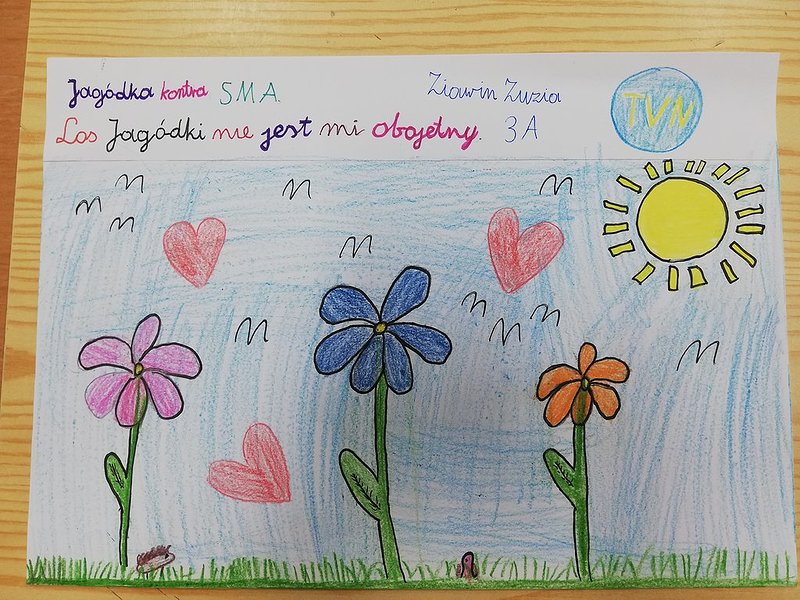 Jagódka kontra SMA.
Los Jagódki nie jest mi obojętny.
Ziawin Zuzia
3A
TVN